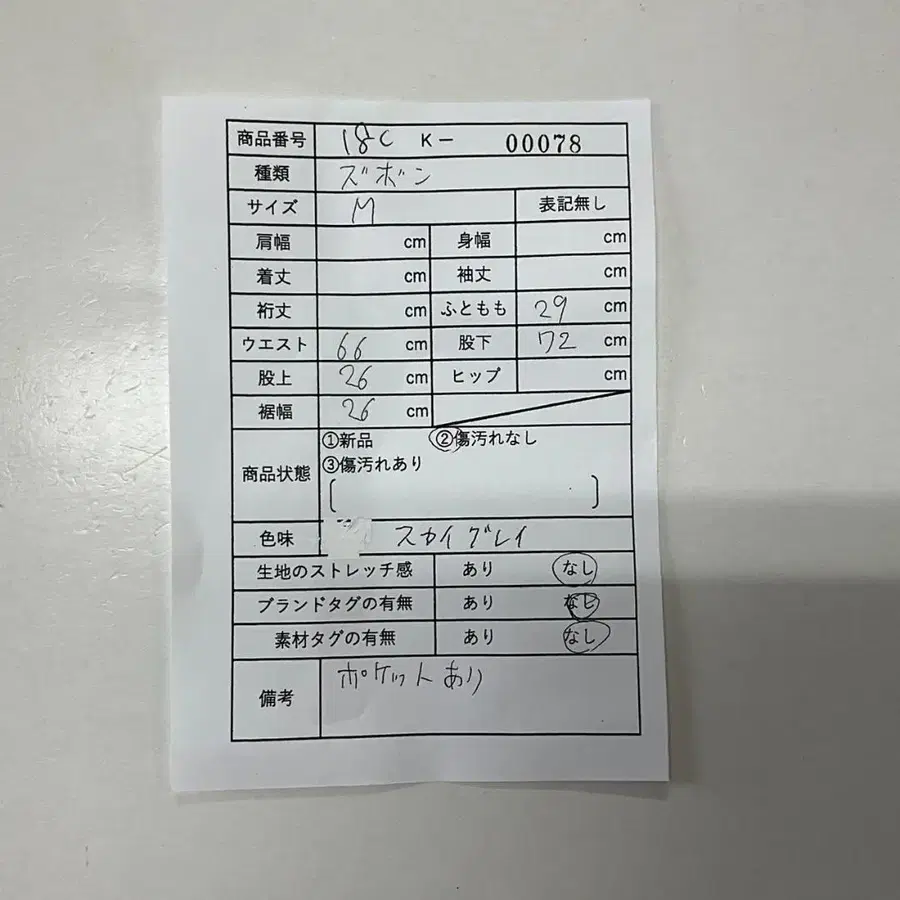 商品番号 18C K- 00078
種類 ズボン
サイズ M 表記無し
肩幅 cm 身幅 cm
着丈 cm 袖丈 cm
裄丈 cm ふともも 29 cm
ウエスト 66 cm 股下 72 cm
股上 26 cm ヒップ cm
裾幅 26 cm
商品状態 ①新品 ②傷汚れなし
③傷汚れあり
[ ]
色味 スカイグレイ
生地のストレッチ感 あり なし
ブランドタグの有無 あり なし
素材タグの有無 あり なし
備考 ポケットあり